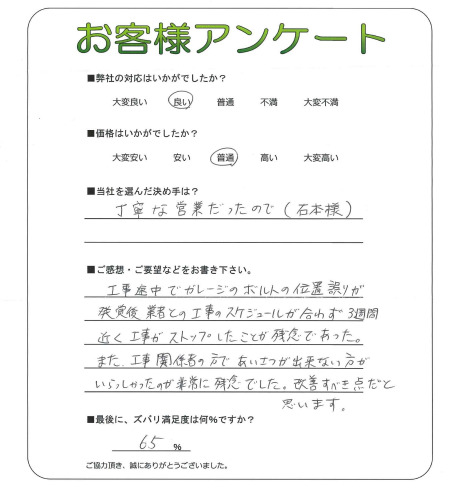 お客様アンケート
■弊社の対応はいかがでしたか？
大変良い　良い　普通　不満　大変不満
■価格はいかがでしたか？
大変安い　安い　普通　高い　大変高い
■当社を選んだ決め手は？
丁寧な営業だったので（石本様）
■ご感想・ご要望などをお書き下さい。
工事途中でガレージのボルトの位置誤りが
発覚後 業者との工事のスケジュールが合わず 3週間
近く工事がストップしたことが残念であった。
また、工事関係者の方であいさつが出来ない方が
いらっしゃったのが非常に残念でした。改善すべき点だと
思います。
■最後に、ズバリ満足度は何％ですか？
65 ％
ご協力頂き、誠にありがとうございました。